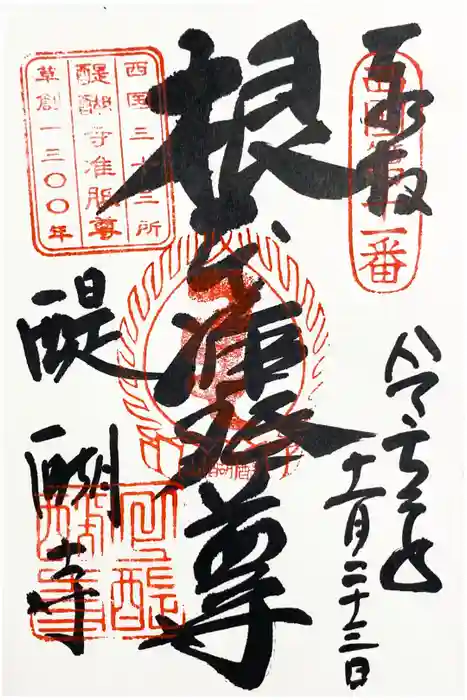 奉拝
西国第十一番
十一月二十三日
根本准胝尊
西国三十三所
醍醐寺准胝尊
草創一三〇〇年
醍醐寺